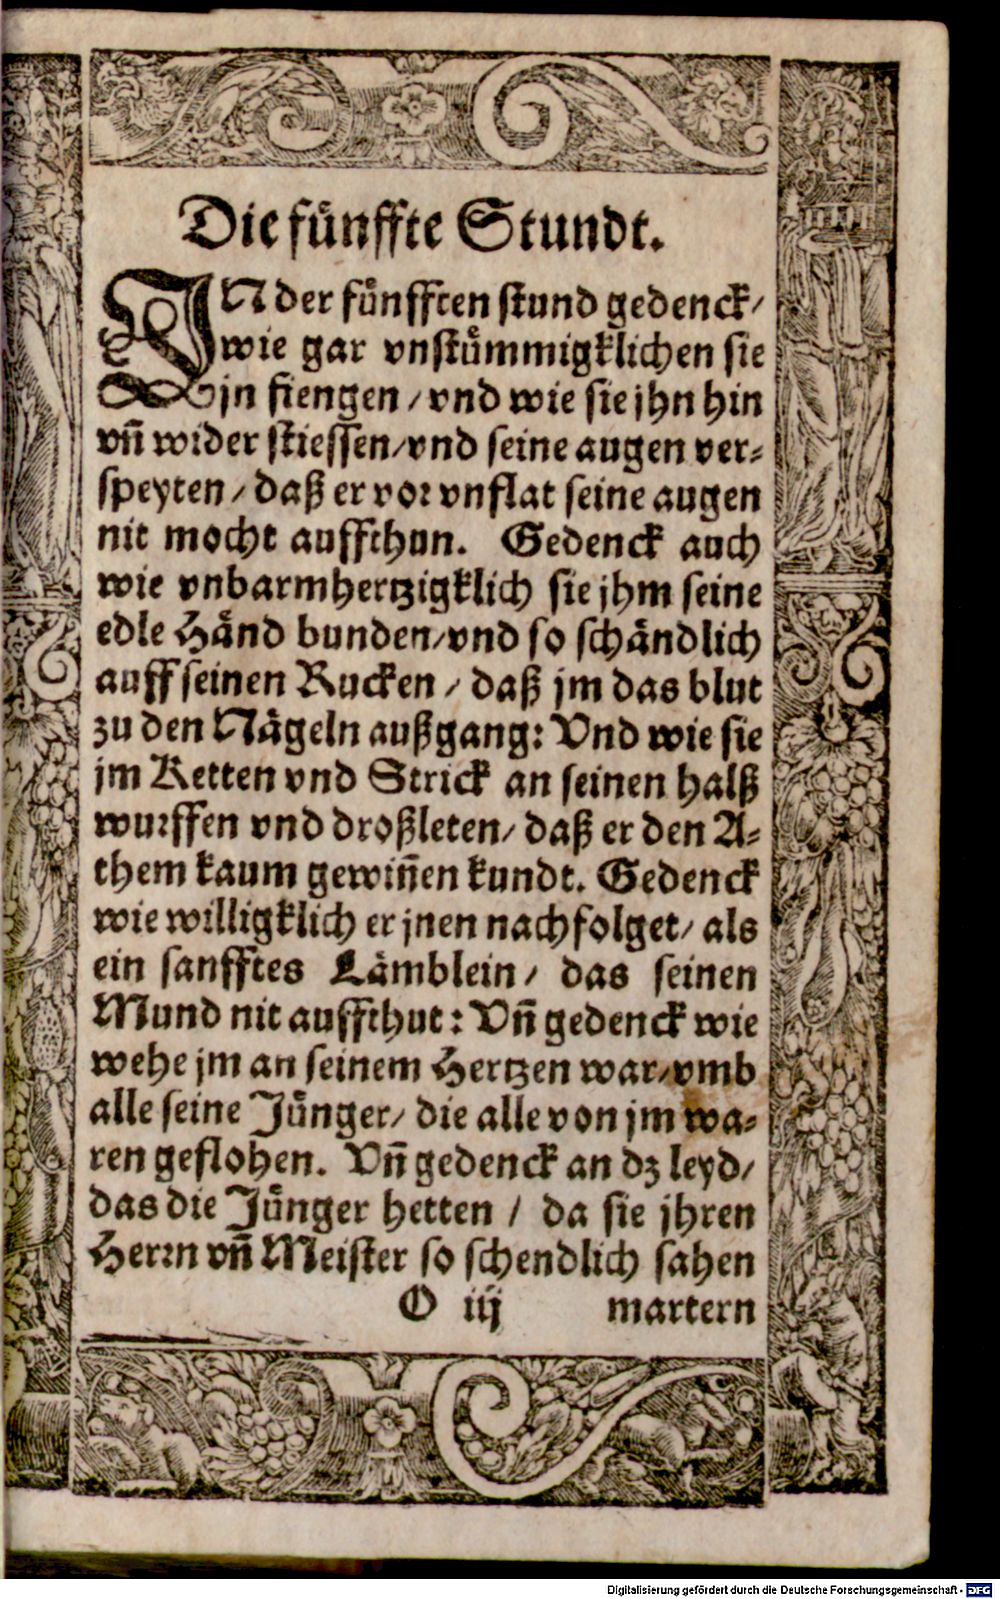 Die fuͤnffte Stundt.
IN der fuͤnfften stund gedenck/
wie gar vnstuͤmmigklichen sie
jn fiengen / vnd wie sie jhn hin
vñ wider stiessen/vnd seine augen ver⸗
speyten / daß er vor vnflat seine augen
nit mocht auffthun. Gedenck auch
wie vnbarmhertzigklich sie jhm seine
edle Haͤnd bunden/vnd so schaͤndlich
auff seinen Rucken / daß jm das blut
zu den Naͤgeln außgang: Vnd wie sie
jm Ketten vnd Strick an seinen halß
wurffen vnd droßleten/ daß er den A⸗
them kaum gewiñen kundt. Gedenck
wie willigklich er jnen nachfolget/ als
ein sanfftes Laͤmblein / das seinen
Mund nit auffthut: Vñ gedenck wie
wehe jm an seinem Hertzen war/vmb
alle seine Juͤnger/ die alle von jm wa⸗
ren geflohen. Vñ gedenck an dz leyd/
das die Juͤnger hetten / da sie jhren
Herrn vñ Meister so schendlich sahen
O iij martern
Digitalisierung gefördert durch die Deutsche Forschungsgemeinschaft - DFG